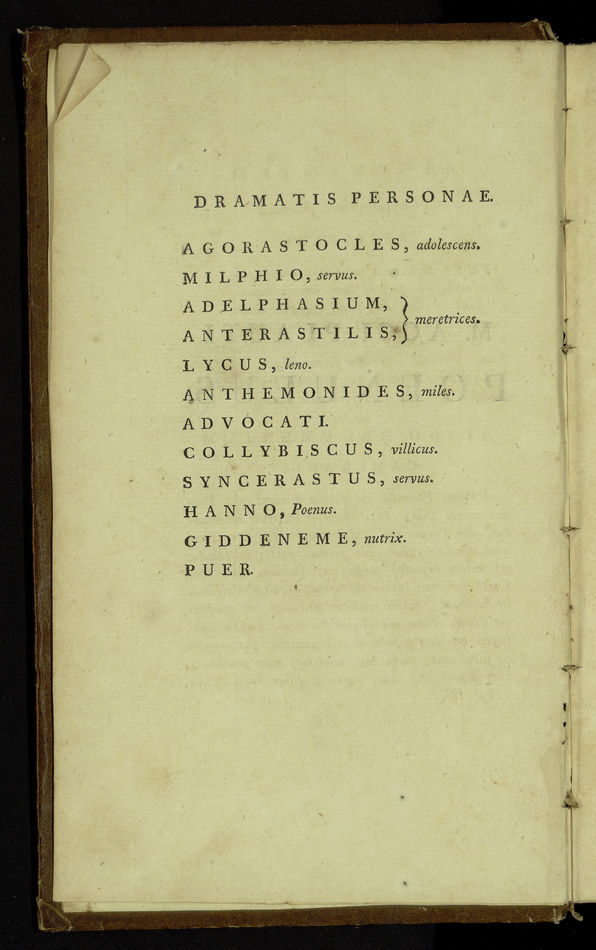 DRAMATIS PERSONAE.
AGORASTOCLES, adolescens.
MILPHIO, servus.
ADELPHASIUM,
ANTERASTILIS, } meretrices.
LYCUS, leno.
ANTHEMONIDES, miles.
ADVOCATI.
COLLYBISCUS, villicus.
SYNCERASTUS, servus.
HANNO, Poenus.
GIDDENEME, nutrix.
PUER.